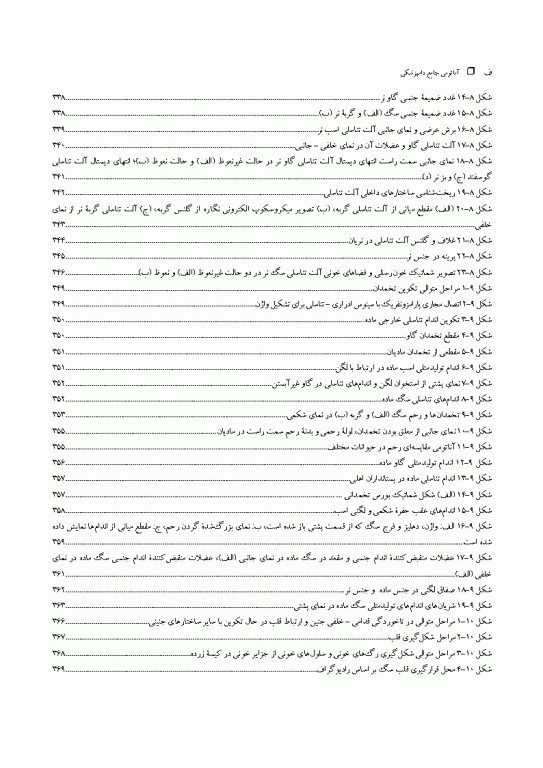 ف ❒ آناتومی جامع دامپزشکی
شکل ۸-۱۴ غدد ضمیمهٔ جنسی گاو نر ۳۳۸
شکل ۸-۱۵ غدد ضمیمهٔ جنسی سگ (الف) و گربهٔ نر (ب) ۳۳۸
شکل ۸-۱۶ برش عرضی و نمای جانبی آلت تناسلی اسب نر ۳۳۹
شکل ۸-۱۷ آلت تناسلی گاو و عضلات آن در نمای خلفی - جانبی ۳۴۰
شکل ۸-۱۸ نمای جانبی سمت راست انتهای دیستال آلت تناسلی گاو نر در حالت غیرنعوظ (الف) و حالت نعوظ (ب)؛ انتهای دیستال آلت تناسلی
گوسفند (ج) و بز نر (د) ۳۴۱
شکل ۸-۱۹ ریخت‌شناسی ساختارهای داخلی آلت تناسلی ۳۴۲
شکل ۸-۲۰ (الف) مقطع میانی از آلت تناسلی گربه، (ب) تصویر میکروسکوپ الکترونی نگاره از گلنس گربه، (ج) آلت تناسلی گربهٔ نر از نمای
خلفی ۳۴۳
شکل ۸-۲۱ غلاف و گلنس آلت تناسلی در نریان ۳۴۴
شکل ۸-۲۲ پرینه در جنس نر ۳۴۵
شکل ۸-۲۳ تصویر شماتیک خون‌رسانی و فضاهای خونی آلت تناسلی سگ نر در دو حالت غیرنعوظ (الف) و نعوظ (ب) ۳۴۶
شکل ۹-۱ مراحل متوالی تکوین تخمدان ۳۴۹
شکل ۹-۲ اتصال مجاری پارامزونفریک با سینوس ادراری - تناسلی برای تشکیل واژن ۳۴۹
شکل ۹-۳ تکوین اندام تناسلی خارجی ماده ۳۵۰
شکل ۹-۴ مقطع تخمدان گاو ۳۵۰
شکل ۹-۵ مقطعی از تخمدان مادیان ۳۵۱
شکل ۹-۶ اندام تولیدمثلی اسب ماده در ارتباط با لگن ۳۵۱
شکل ۹-۷ نمای پشتی از استخوان لگن و اندام‌های تناسلی در گاو غیرآبستن ۳۵۲
شکل ۹-۸ اندام‌های تناسلی سگ ماده ۳۵۲
شکل ۹-۹ تخمدان‌ها و رحم سگ (الف) و گربه (ب) در نمای شکمی ۳۵۳
شکل ۹-۱۰ نمای جانبی از معلق بودن تخمدان، لولهٔ رحمی و بدنهٔ رحم سمت راست در مادیان ۳۵۵
شکل ۹-۱۱ آناتومی مقایسه‌ای رحم در حیوانات مختلف ۳۵۵
شکل ۹-۱۲ اندام تولیدمثلی گاو ماده ۳۵۶
شکل ۹-۱۳ اندام تناسلی ماده در پستانداران اهلی ۳۵۷
شکل ۹-۱۴ (الف) شکل شماتیک بورس تخمدانی ... ۳۵۷
شکل ۹-۱۵ اندام‌های عقب حفرهٔ شکمی و لگنی اسب ۳۵۸
شکل ۹-۱۶ الف: واژن، دهلیز و فرج سگ که از قسمت پشتی باز شده است، ب: نمای بزرگ‌شدهٔ گردن رحم، ج: مقطع میانی از اندام‌ها نمایش داده
شده است ۳۵۹
شکل ۹-۱۷ عضلات منقبض‌کنندهٔ اندام جنسی و مقعد در سگ ماده در نمای جانبی (الف)، عضلات منقبض‌کنندهٔ اندام جنسی سگ ماده در نمای
خلفی (الف) ۳۶۱
شکل ۹-۱۸ صفاق لگنی در جنس ماده و جنس نر ۳۶۲
شکل ۹-۱۹ شریان‌های اندام‌های تولیدمثلی سگ ماده در نمای پشتی ۳۶۳
شکل ۱۰-۱ مراحل متوالی در تاخوردگی قدامی - خلفی جنین و ارتباط قلب در حال تکوین با سایر ساختارهای جنینی ۳۶۶
شکل ۱۰-۲ مراحل شکل‌گیری قلب ۳۶۷
شکل ۱۰-۳ مراحل متوالی شکل‌گیری رگ‌های خونی و سلول‌های خونی از جزایر خونی در کیسهٔ زرده ۳۶۸
شکل ۱۰-۴ محل قرارگیری قلب سگ بر اساس رادیوگراف ۳۶۹